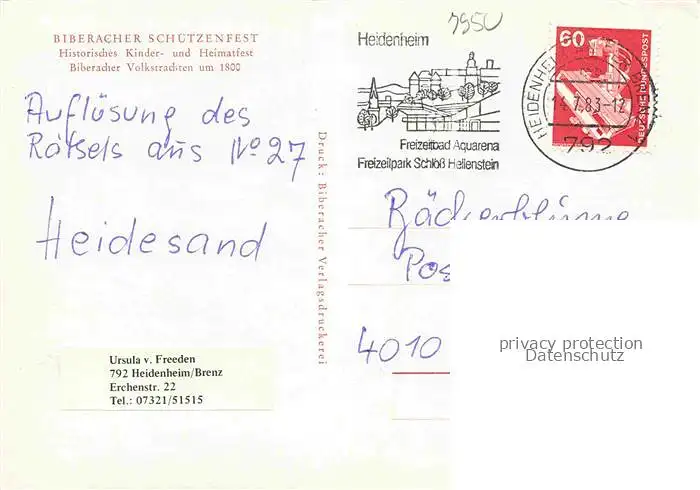 BIBERACHER SCHÜTZENFEST
Historisches Kinder- und Heimatfest
Biberacher Volkstrachten um 1800
Auflösung des
Rätsels aus No 27
Heidesand
Ursula v. Freeden
792 Heidenheim/Brenz
Erchenstr. 22
Tel.: 07321/51515
Druck: Biberacher Verlagsdruckerei
7950
Heidenheim
Freizeitbad Aquarena
Freizeitpark Schloß Hellenstein
60
DEUTSCHE BUNDESPOST
14.7.83-12
792
Bäckerblume
Pos
4010
privacy protection
Datenschutz